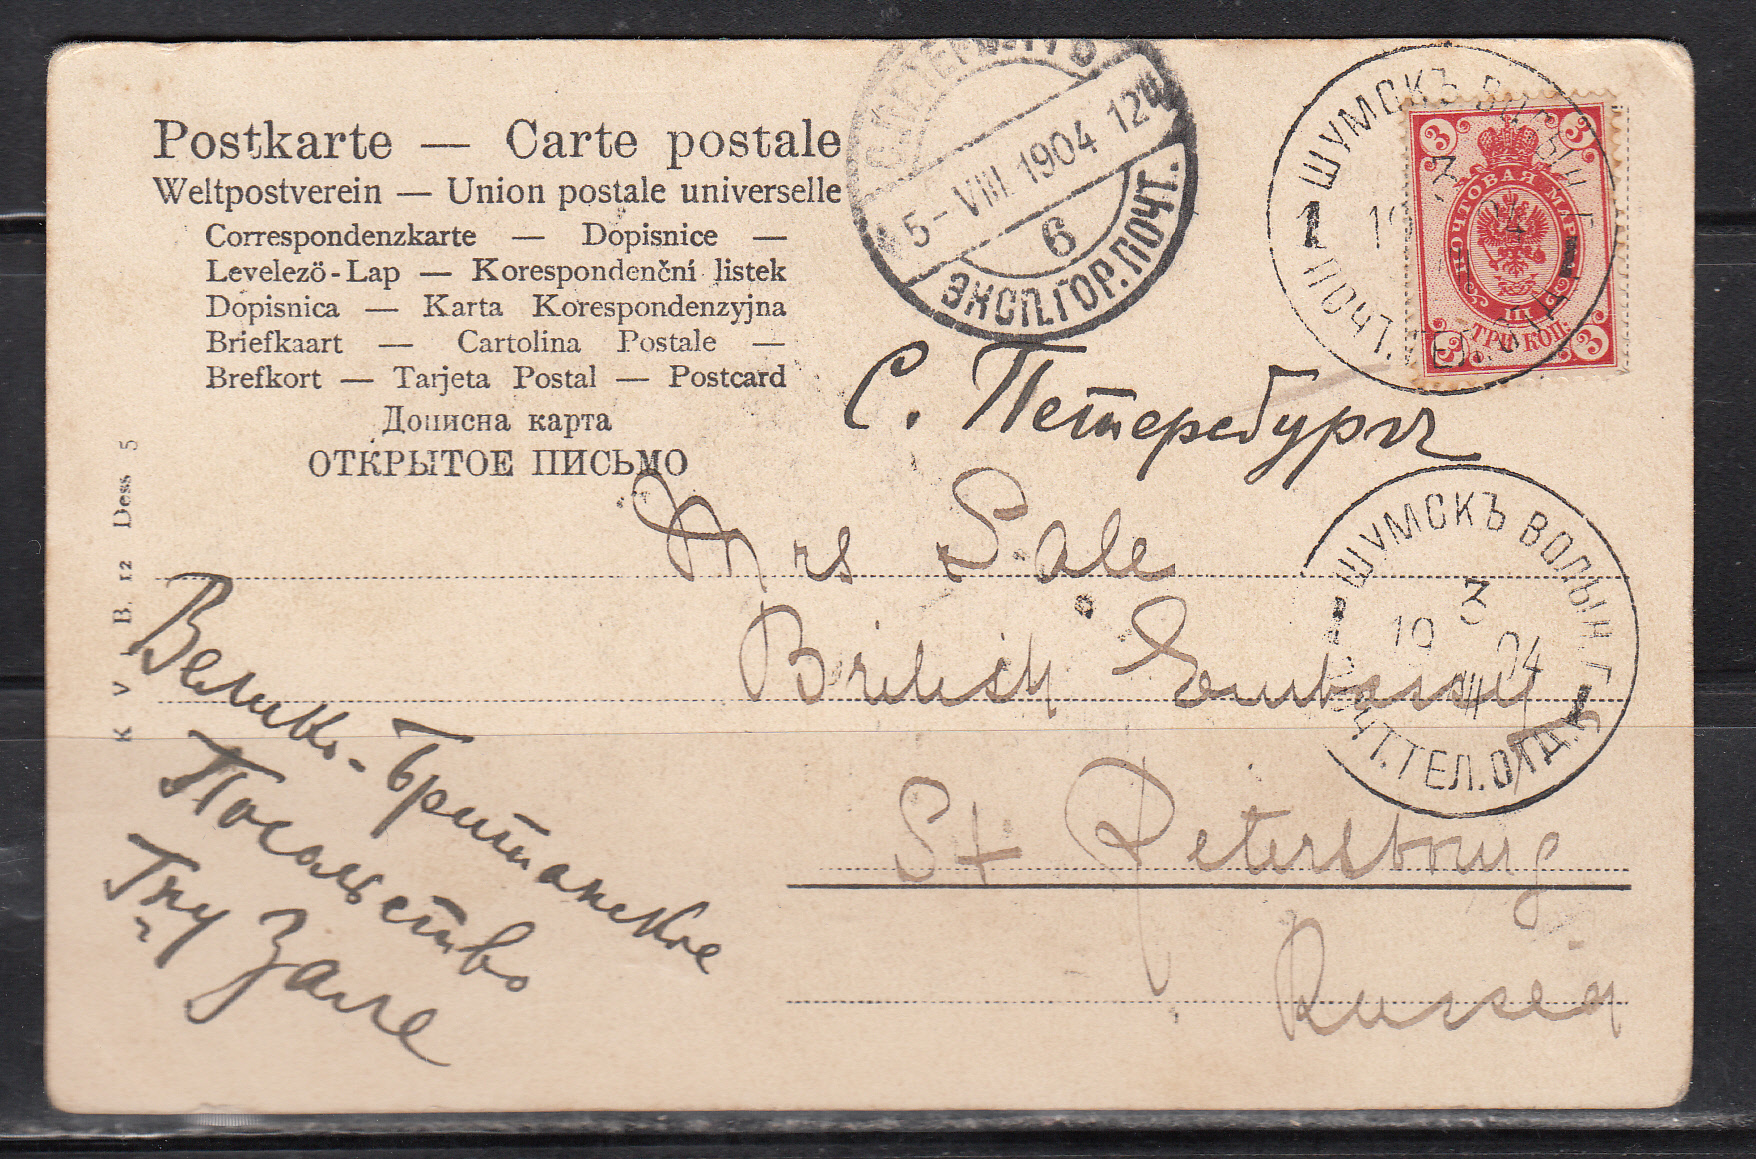 Postkarte — Carte postale
Weltpostverein — Union postale universelle
Correspondenzkarte — Dopisnice —
Levelező-Lap — Korespondenční listek
Dopisnica — Karta Korespondenzyjna
Briefkaart — Cartolina Postale —
Brefkort — Tarjeta Postal — Postcard
Дописна карта
ОТКРЫТОЕ ПИСЬМО
5-VIII.1904 12
6
ЭКСП.ГОР.ПОЧТ.
ШУМСКЪ
1
ПОЧТ.
3 3
ПОЧТОВАЯ МАРКА
ТРИ КОП.
3 3
С. Петербургъ
Mrs Sale
British Embassy
St Petersbourg
Russia
ШУМСКЪ ВОЛЫН. Г.
3
19 04
VIII
ПОЧТ.ТЕЛ.ОТД.
Велико-Британское
Посольство
Гжу Зале
K V B. 12 Dess 5